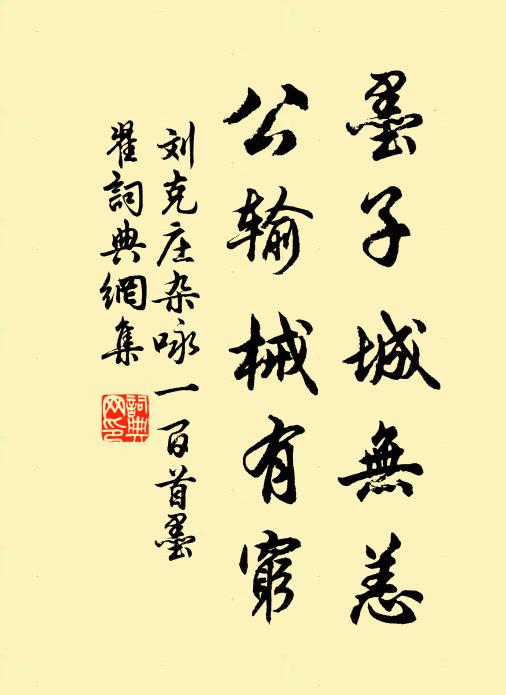 墨子城無恙
公输械有窮
刘克庄杂咏一百首墨
翟詞典網集
詞典网印